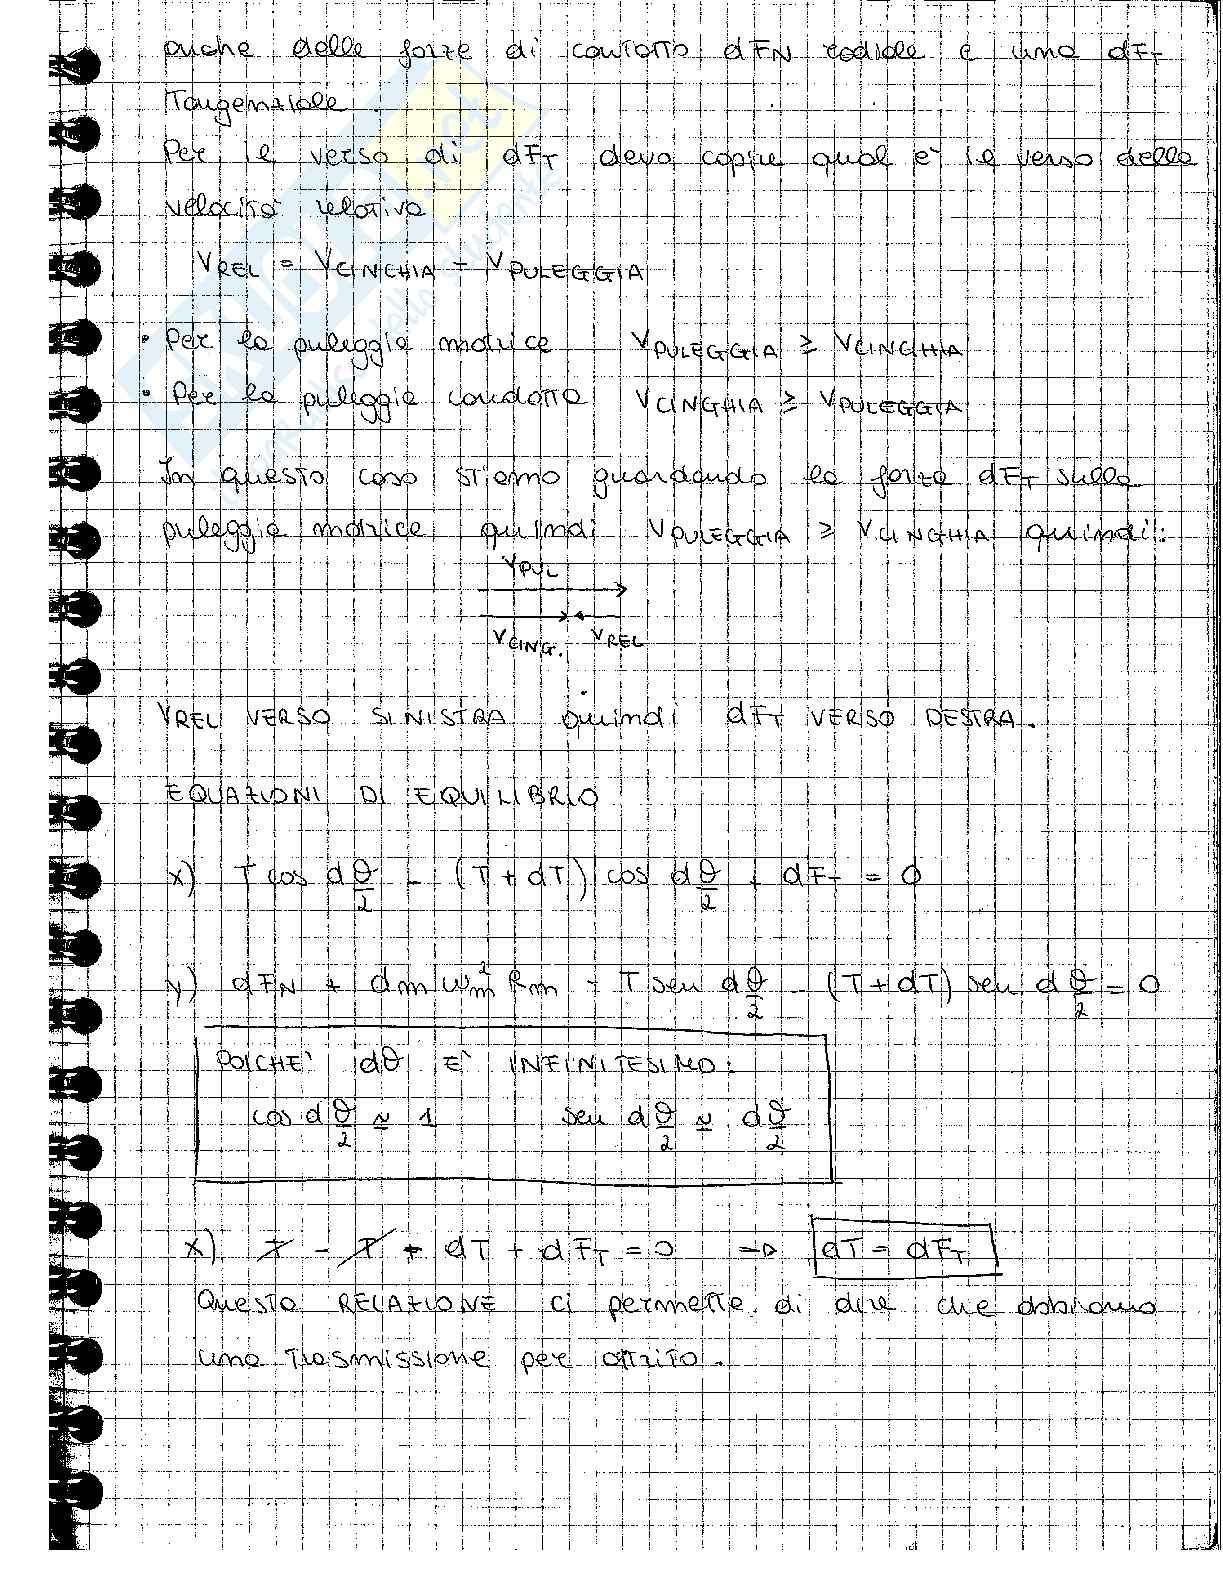 anche delle forze di contatto dF_N radiale e una dF_T
Tangenziale.
Per il verso di dF_T devo capire qual è il verso della
velocità relativa
V_REL = V_CINGHIA - V_PULEGGIA
• Per la puleggia motrice V_PULEGGIA ≥ V_CINGHIA
• Per la puleggia condotta V_CINGHIA ≥ V_PULEGGIA
In questo caso stiamo guardando la forza dF_T sulla
puleggia motrice quindi V_PULEGGIA ≥ V_CINGHIA quindi:
V_PUL
V_CING. V_REL
V_REL VERSO SINISTRA quindi dF_T VERSO DESTRA.
EQUAZIONI DI EQUILIBRIO
x) T cos dθ/2 - (T + dT) cos dθ/2 + dF_T = 0
y) dF_N + dm ω_m² R_m - T sen dθ/2 - (T + dT) sen dθ/2 = 0
POICHE' dθ E' INFINITESIMO:
cos dθ/2 ≃ 1 sen dθ/2 ≃ dθ/2
x) T - T + dT + dF_T = 0 => dT = dF_T
Questa RELAZIONE ci permette di dire che abbiamo
una trasmissione per attrito.